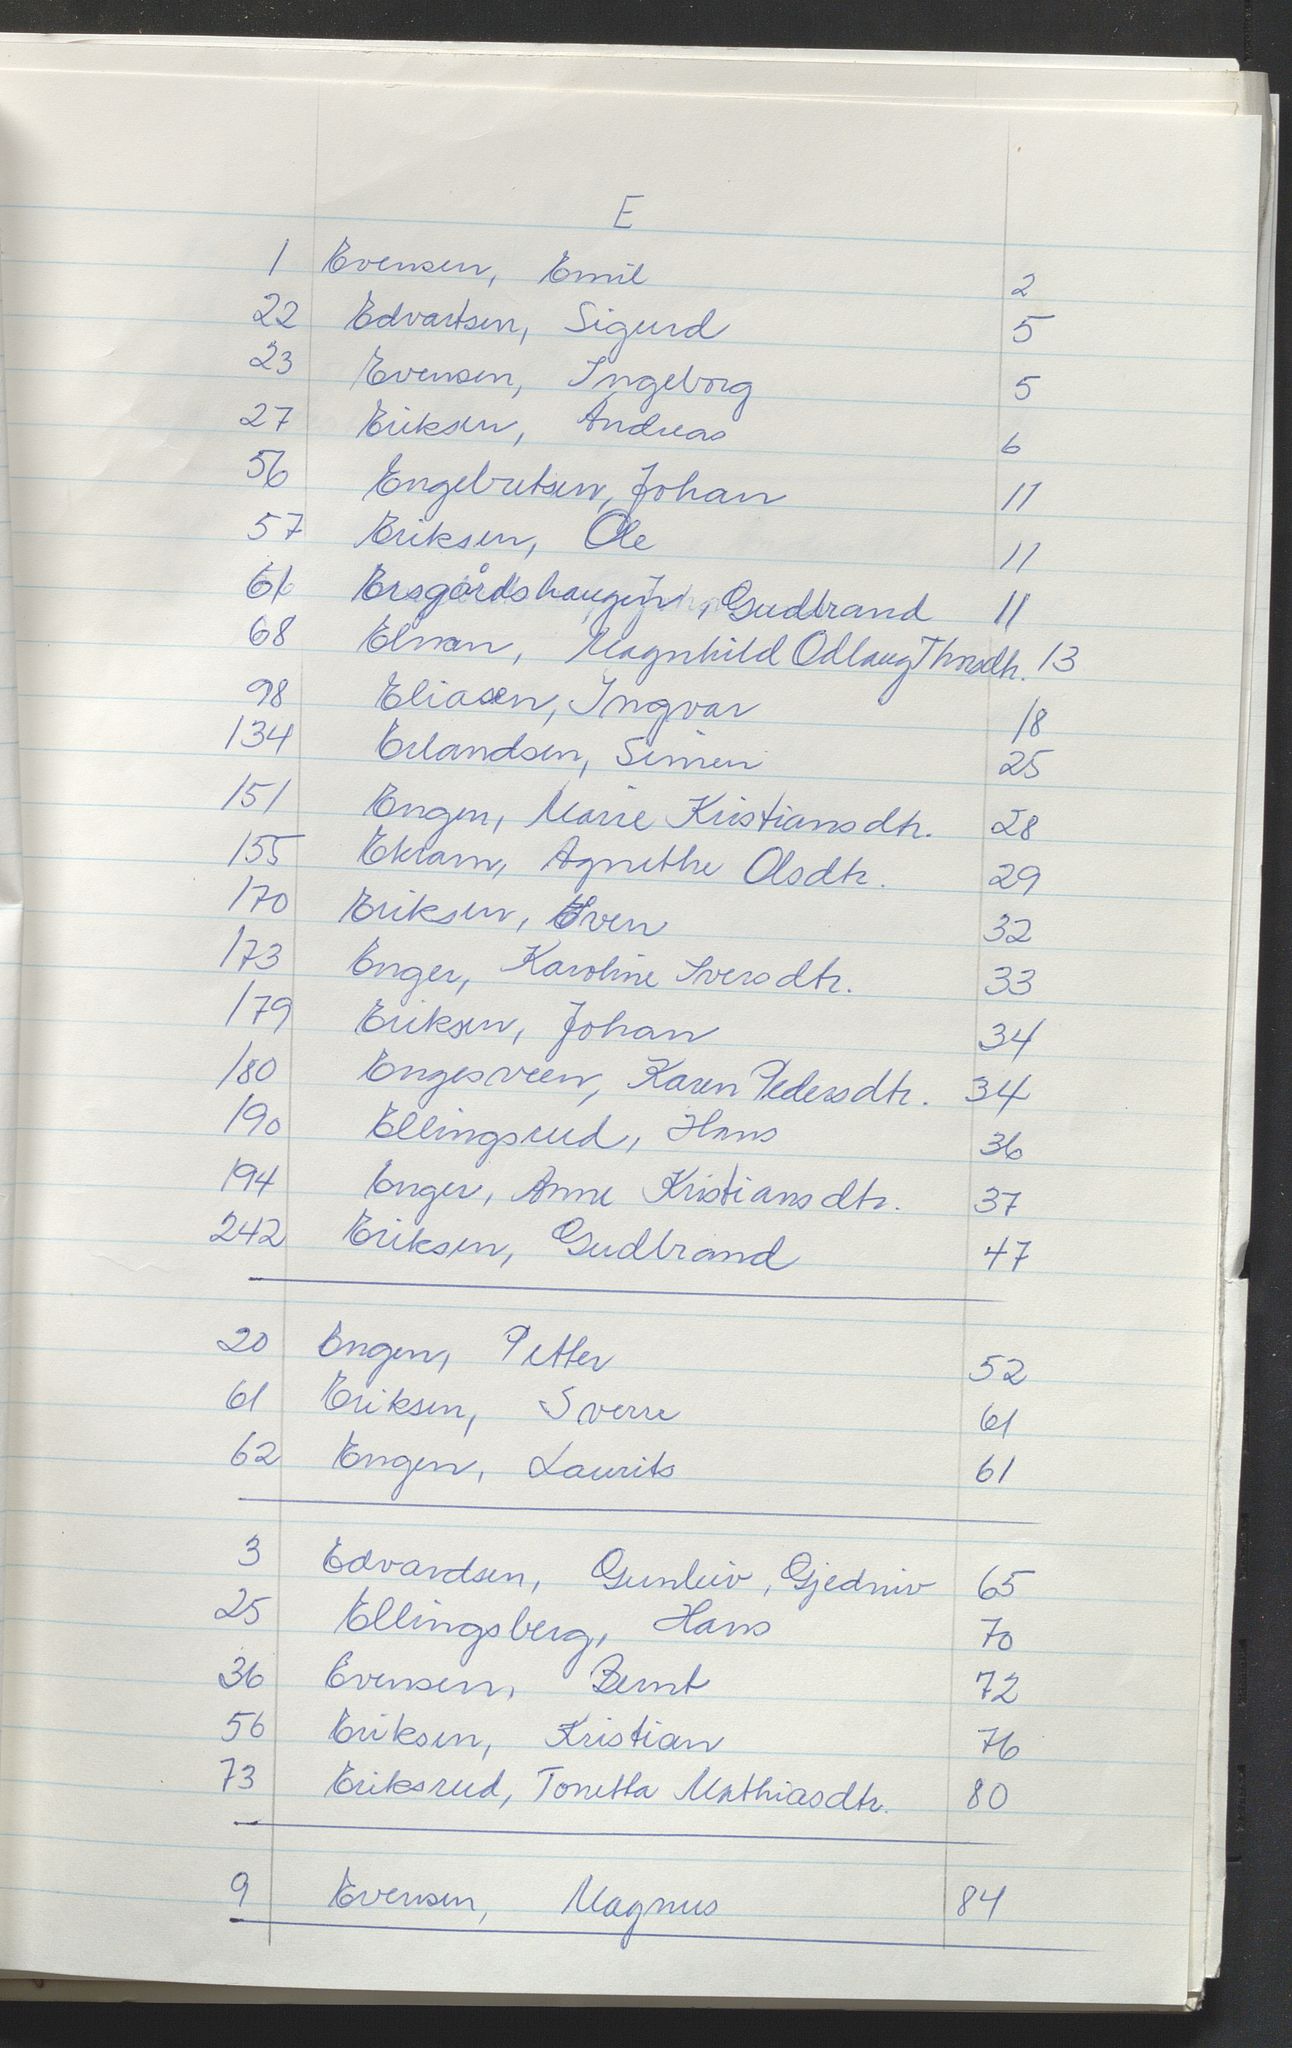 E
1 Evensen, Emil 2
22 Edvartsen, Sigurd 5
23 Evensen, Ingeborg 5
27 Eriksen, Andreas 6
56 Engebretsen, Johan 11
57 Eriksen, Ole 11
61 Ersgårdshaugen, Gudbrand 11
68 Magnhild Odlaug Thorsdtr. 13
98 Eliasen, Ingvar 18
134 Erlandsen, Simen 25
151 Engen, Marie Kristiansdtr. 28
155 Ekram, Agnethe Olsdtr. 29
170 Eriksen, Even 32
173 Enger, Karoline Iversdtr. 33
179 Eriksen, Johan 34
180 Engesveen, Karen Pedersdtr. 34
190 Ellingsrud, Hans 36
194 Enger, Anne Kristiansdtr. 37
242 Eriksen, Gudbrand 47
20 Engen, Petter 52
61 Eriksen, Sverre 61
62 Engen, Laurits 61
3 Edvardsen, Gunleiv, 65
25 Ellingsberg, Hans 70
36 Evensen, Bernt 72
56 Eriksen, Kristian 76
73 Eriksrud, Tonetta Mathiasdtr. 80
9 Evensen, Magnus 84